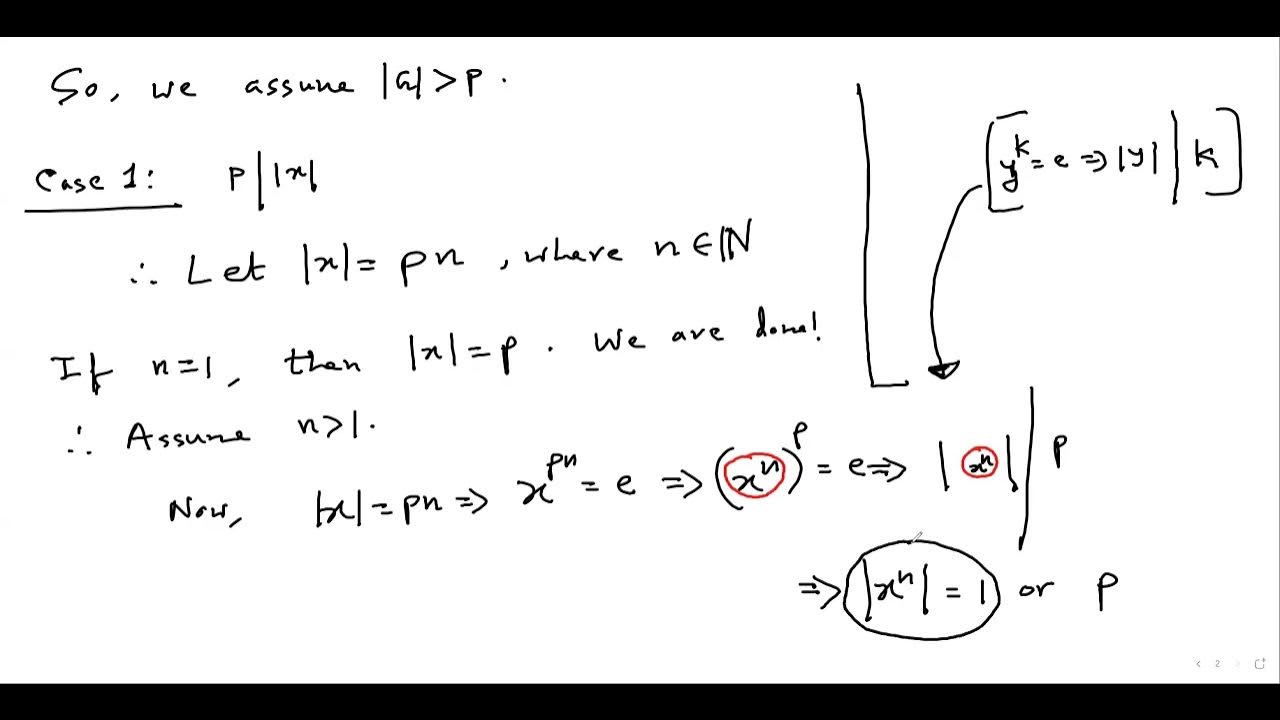 So, we assume |G| > p.
[y^k = e ⇒ |y| | k]
Case 1: p | |x|
∴ Let |x| = pn, where n ∈ ℕ
If n=1, then |x| = p. We are done!
∴ Assume n>1.
Now, |x| = pn ⇒ x^pn = e ⇒ (x^n)^p = e ⇒ |x^n| | p
⇒ |x^n| = 1 or p
2